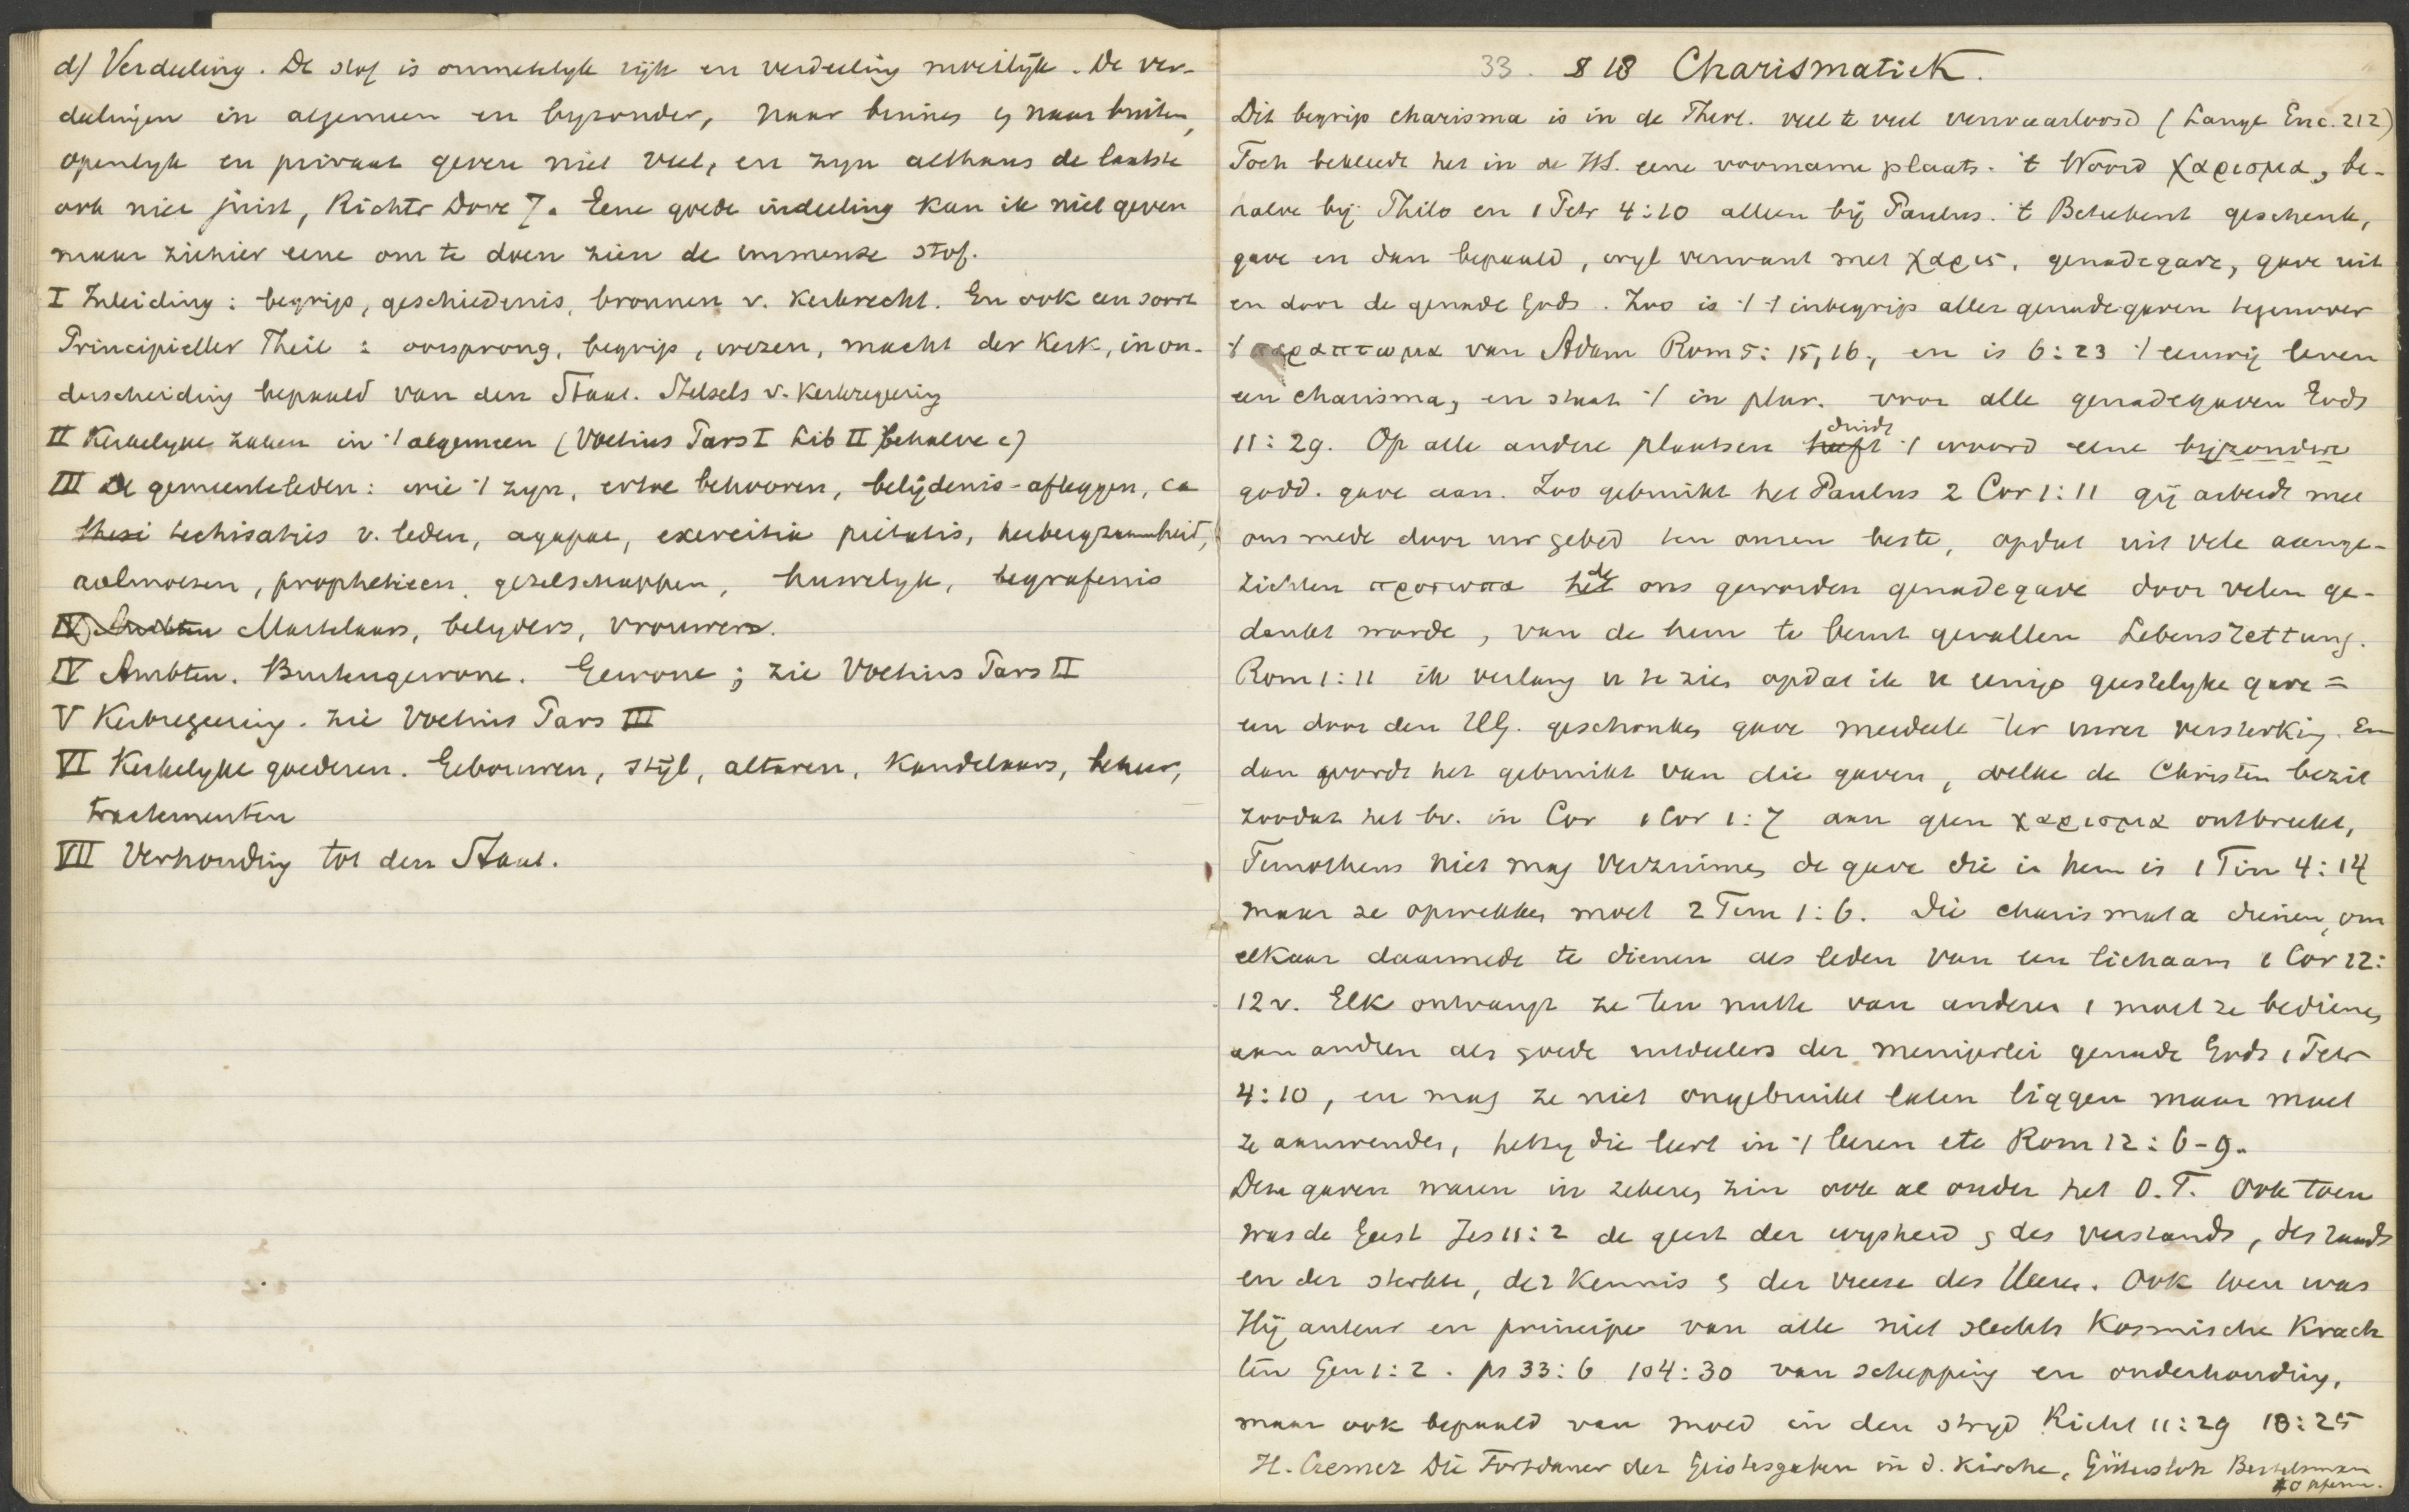 d) Verdeeling. De stof is onmetelyk ryk en verdeeling moeilyk. De ver-
deelingen in algemeen en byzonder, naar binnen en naar buiten,
openlyk en privaat geven niet veel, en zyn althans de laatste
ook niet juist, Richter Dove 7. Eene goede indeeling kan ik niet geven
maar ziehier eene om te doen zien de immense stof.
I Inleiding: begrip, geschiedenis, bronnen v. Kerkrecht. En ook een soort
Principieller Theil: oorsprong, begrip, wezen, macht der Kerk, in on-
derscheiding bepaald van den Staat. Stelsels v. Kerkregering
II Kerkelyke zaken in 't algemeen (Voetius Pars I Lib II behalve c)
III De gemeenteleden: wie 't zyn, ertoe behooren, belijdenis-afleggen, ca
thesi techisaties v. leden, agapae, exercitia pietatis, herbergzaamheid,
aalmoezen, prophetieen, gezelschappen, huwelyk, begrafenis
IV Ambten Martelaars, belyders, vrouwen.
IV Ambten. Buitengewone. Gewone; zie Voetius Pars II
V Kerkregeering. zie Voetius Pars III
VI Kerkelyke goederen. Gebouwen, stijl, altaren, Kandelaars, beheer,
tractementen
VII Verhouding tot den Staat.
33. § 18 Charismatiek.
Dit begrip charisma is in de Theol. veel te veel verwaarloosd (Lange Enc. 212)
Toch bekleedt het in de HS. eene voorname plaats. 't Woord χαρισμα, be-
halve bij Philo en 1 Petr 4:10 alleen bij Paulus. 't Beteekent geschenk,
gave en dan bepaald, wyl verwant met χαρις, genadegave, gave uit
en door de genade Gods. Zoo is 't 't inbegrip aller genadegaven tegenover
't παραπτωμα van Adam Rom 5:15,16, en is 6:23 't eeuwig leven
een charisma, en staat 't in plur. voor alle genadegaven Gods
11:29. Op alle andere plaatsen heeft duidt 't woord eene bijzondere
godd. gave aan. Zoo gebruikt het Paulus 2 Cor 1:11 gij arbeidt mee
ons mede door uw gebed ten onzen beste, opdat uit vele aange-
zichten προσωπα het de ons geworden genadegave door velen ge-
dankt worde, van de hem te beurt gevallen Lebensrettung.
Rom 1:11 ik verlang u te zien opdat ik u eenige geestelyke gave =
een door den HG. geschonken gave mededeele ter uwer versterking. En
dan wordt het gebruikt van die gaven, welke de Christen bezit
zoodat het bv. in Cor 1 Cor 1:7 aan geen χαρισμα ontbreekt,
Timotheus niet mag verzuimen de gave die in hem is 1 Tim 4:14
maar ze opwekken moet 2 Tim 1:6. Die charismata dienen, om
elkaar daarmede te dienen als leden van een lichaam 1 Cor 12:
12 v. Elk ontvangt ze ten nutte van anderen, moet ze bedienen
aan andren als goede uitdeelers der menigerlei genade Gods 1 Petr
4:10, en mag ze niet ongebruikt laten liggen maar moet
ze aanwenden, hetzy die leert in 't leeren etc Rom 12:6-9.
Deze gaven waren in zekeren zin ook al onder het O.T. Ook toen
was de Geest Jes 11:2 de geest der wysheid en des verstands, des raads
en der sterkte, der Kennis en der vreeze des Heeren. Ook toen was
Hij auteur en principe van alle niet slechts Kosmische Krach
ten Gen 1:2. ps 33:6 104:30 van schepping en onderhouding,
maar ook bepaald van moed in den stryd Richt 11:29 13:25
H. Cremer Die Fortdauer der Geistesgaben in d. Kirche, Gütersloh Bertelsmann